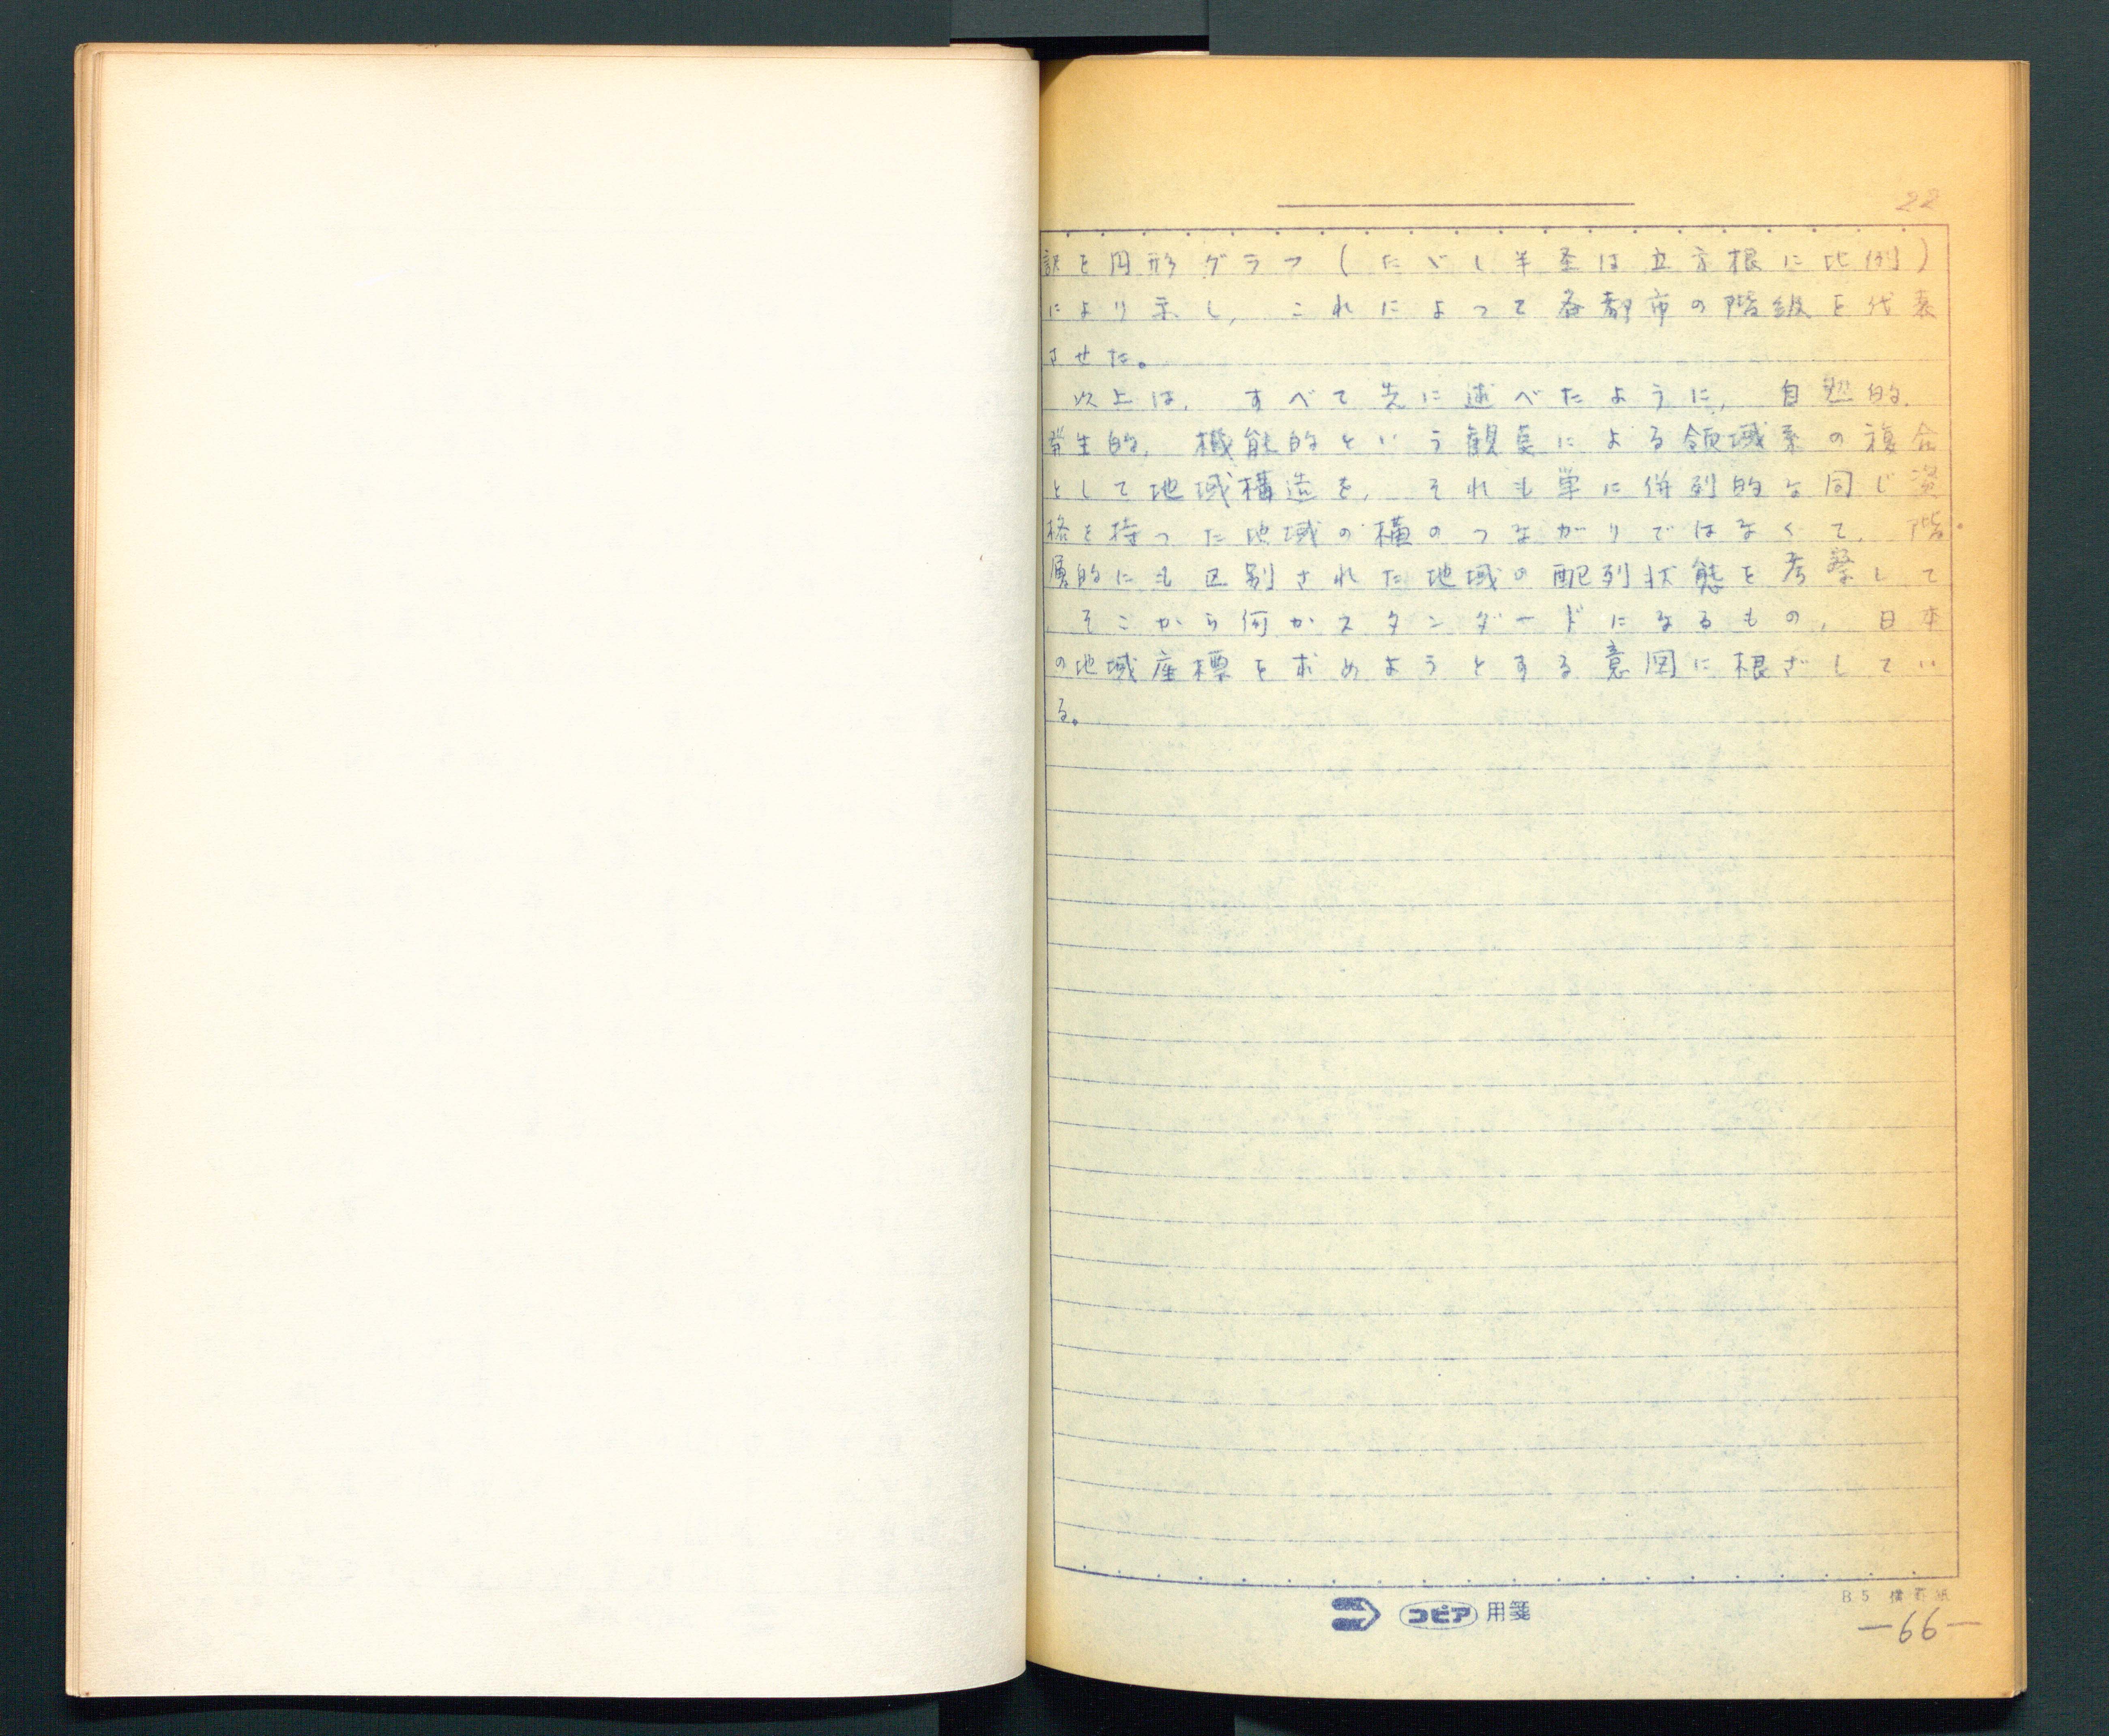 22
訳を円形グラフ(たゞし半径は立方根に比例)
により示し,これによって各都市の階級を代表
させた。
以上は,すべて先に述べたように,自然的,
発生的,機能的という観点による領域系の複合
として地域構造を,それも単に併列的な同じ資
格を持った地域の横のつながりではなくて,階
層的にも区別された地域の配列状態を考察して
そこから何かスタンダードになるもの,日本
の地域座標を求めようとする意図に根ざしてい
る。
コピア用箋
B5 横罫紙
—66—